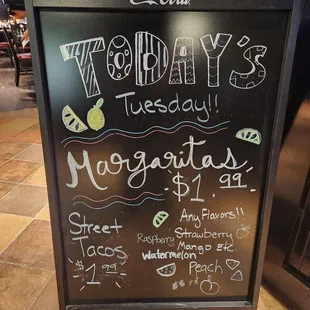 Cola
TODAY'S
Tuesday!!
Margaritas
$1.99
Any Flavors!!
Raspberry Strawberry
Mango Etc
Watermelon
Peach
Street
Tacos
$1.99